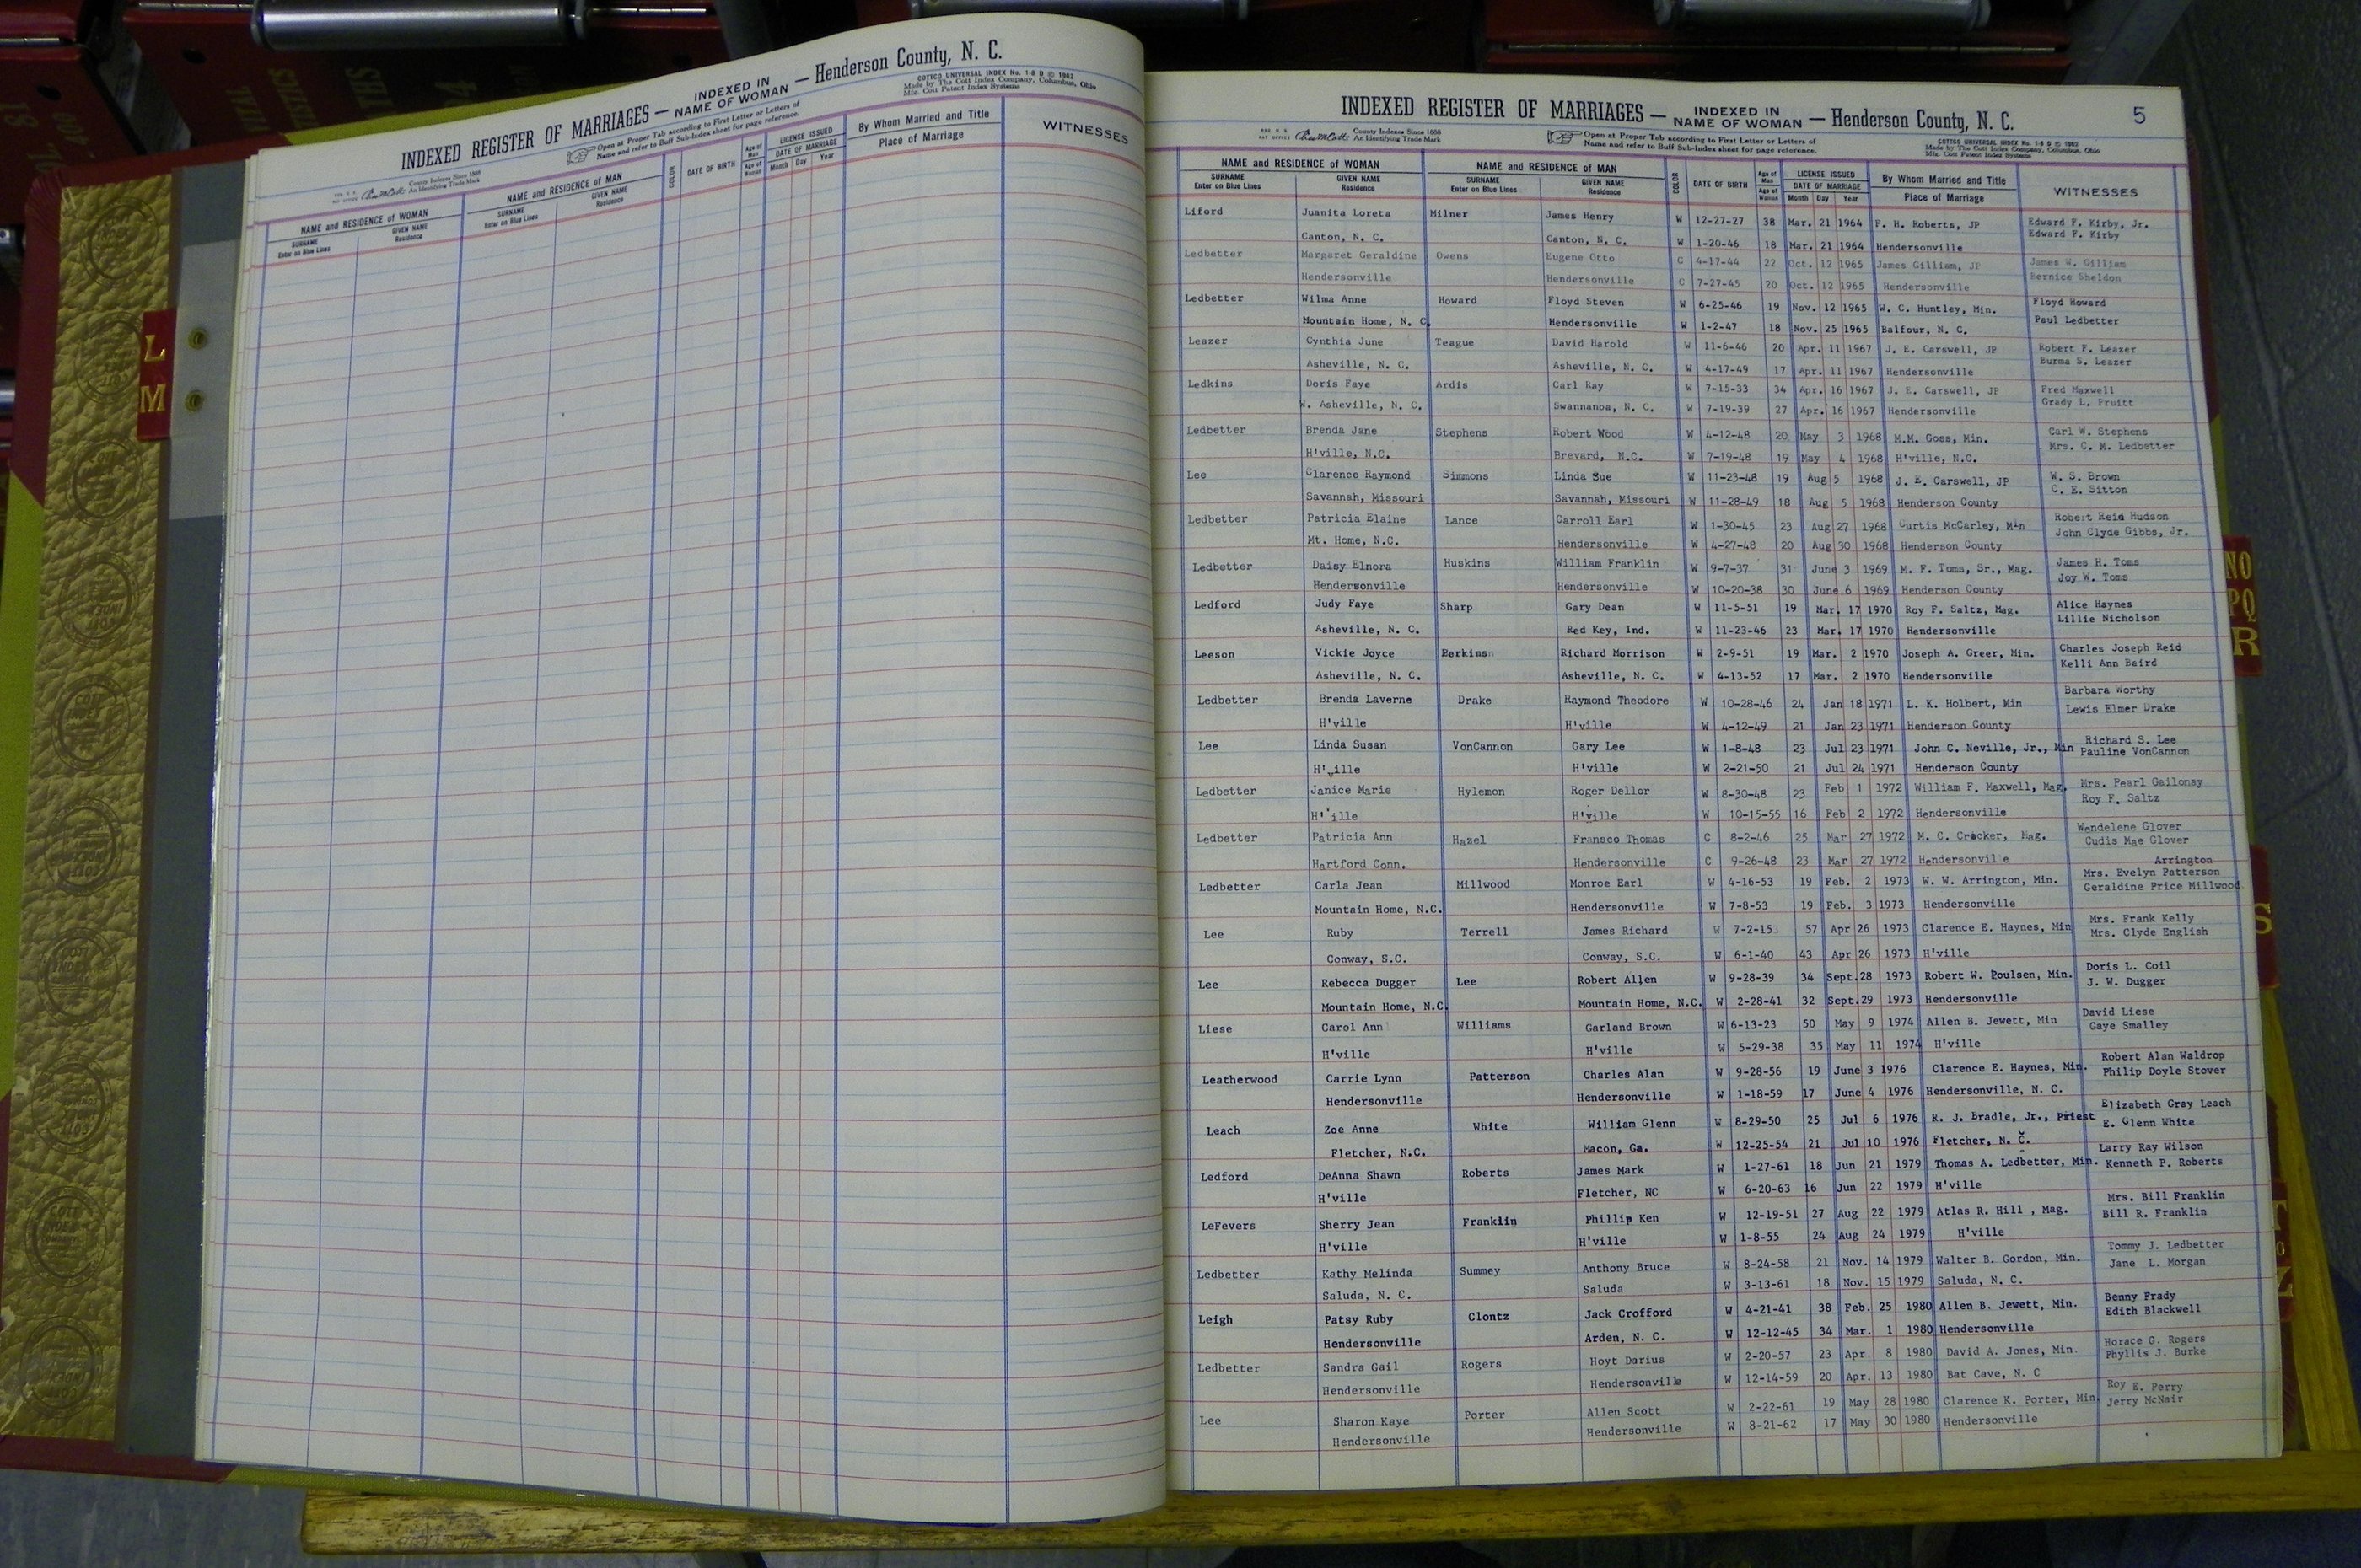 INDEXED REGISTER OF MARRIAGES — INDEXED IN NAME OF WOMAN — Henderson County, N. C.
COTTCO UNIVERSAL INDEX No. 1-8 D © 1982
Made by The Cott Index Company, Columbus, Ohio
Mfg. Cott Patent Index Systems
County Indexes Since 1888
An Identifying Trade Mark
Open at Proper Tab according to First Letter or Letters of
Name and refer to Buff Sub-Index sheet for page reference.
NAME and RESIDENCE of WOMAN NAME and RESIDENCE of MAN COLOR DATE OF BIRTH Age of Man LICENSE ISSUED By Whom Married and Title WITNESSES
SURNAME GIVEN NAME SURNAME GIVEN NAME Age of Woman DATE OF MARRIAGE Place of Marriage
Enter on Blue Lines Residence Enter on Blue Lines Residence Month Day Year
L
M
INDEXED REGISTER OF MARRIAGES — INDEXED IN NAME OF WOMAN — Henderson County, N. C. 5
County Indexes Since 1888
An Identifying Trade Mark
Open at Proper Tab according to First Letter or Letters of
Name and refer to Buff Sub-Index sheet for page reference.
COTTCO UNIVERSAL INDEX No. 1-8 D © 1982
Made by The Cott Index Company, Columbus, Ohio
Mfg. Cott Patent Index Systems
NAME and RESIDENCE of WOMAN NAME and RESIDENCE of MAN COLOR DATE OF BIRTH Age of Man LICENSE ISSUED By Whom Married and Title WITNESSES
SURNAME GIVEN NAME SURNAME GIVEN NAME Age of Woman DATE OF MARRIAGE Place of Marriage
Enter on Blue Lines Residence Enter on Blue Lines Residence Month Day Year
Liford Juanita Loreta Milner James Henry W 12-27-27 38 Mar. 21 1964 F. H. Roberts, JP Edward F. Kirby, Jr.
Canton, N. C. Canton, N. C. W 1-20-46 18 Mar. 21 1964 Hendersonville Edward F. Kirby
Ledbetter Margaret Geraldine Owens Eugene Otto C 4-17-44 22 Oct. 12 1965 James Gilliam, JP James W. Gilliam
Hendersonville Hendersonville C 7-27-45 20 Oct. 12 1965 Hendersonville Bernice Sheldon
Ledbetter Wilma Anne Howard Floyd Steven W 6-25-46 19 Nov. 12 1965 W. C. Huntley, Min. Floyd Howard
Mountain Home, N. C. Hendersonville W 1-2-47 18 Nov. 25 1965 Balfour, N. C. Paul Ledbetter
Leazer Cynthia June Teague David Harold W 11-6-46 20 Apr. 11 1967 J. E. Carswell, JP Robert F. Leazer
Asheville, N. C. Asheville, N. C. W 4-17-49 17 Apr. 11 1967 Hendersonville Burma S. Leazer
Ledkins Doris Faye Ardis Carl Ray W 7-15-33 34 Apr. 16 1967 J. E. Carswell, JP Fred Maxwell
W. Asheville, N. C. Swannanoa, N. C. W 7-19-39 27 Apr. 16 1967 Hendersonville Grady L. Pruitt
Ledbetter Brenda Jane Stephens Robert Wood W 4-12-48 20 May 3 1968 M.M. Goss, Min. Carl W. Stephens
H'ville, N.C. Brevard, N.C. W 7-19-48 19 May 4 1968 H'ville, N.C. Mrs. C. M. Ledbetter
Lee Clarence Raymond Simmons Linda Sue W 11-23-48 19 Aug 5 1968 J. E. Carswell, JP W. S. Brown
Savannah, Missouri Savannah, Missouri W 11-28-49 18 Aug 5 1968 Henderson County C. E. Sitton
Ledbetter Patricia Elaine Lance Carroll Earl W 1-30-45 23 Aug 27 1968 Curtis McCarley, Min Robert Reid Hudson
Mt. Home, N.C. Hendersonville W 4-27-48 20 Aug 30 1968 Henderson County John Clyde Gibbs, Jr.
Ledbetter Daisy Elnora Huskins William Franklin W 9-7-37 31 June 3 1969 M. F. Toms, Sr., Mag. James H. Toms
Hendersonville Hendersonville W 10-20-38 30 June 6 1969 Henderson County Joy W. Toms
Ledford Judy Faye Sharp Gary Dean W 11-5-51 19 Mar. 17 1970 Roy F. Saltz, Mag. Alice Haynes
Asheville, N. C. Red Key, Ind. W 11-23-46 23 Mar. 17 1970 Hendersonville Lillie Nicholson
Leeson Vickie Joyce Perkins Richard Morrison W 2-9-51 19 Mar. 2 1970 Joseph A. Greer, Min. Charles Joseph Reid
Asheville, N. C. Asheville, N. C. W 4-13-52 17 Mar. 2 1970 Hendersonville Kelli Ann Baird
Ledbetter Brenda Laverne Drake Raymond Theodore W 10-28-46 24 Jan 18 1971 L. K. Holbert, Min Barbara Worthy
H'ville H'ville W 4-12-49 21 Jan 23 1971 Henderson County Lewis Elmer Drake
Lee Linda Susan VonCannon Gary Lee W 1-8-48 23 Jul 23 1971 John C. Neville, Jr., Min Richard S. Lee
H'ville H'ville W 2-21-50 21 Jul 24 1971 Henderson County Pauline VonCannon
Ledbetter Janice Marie Hylemon Roger Dellor W 8-30-48 23 Feb 1 1972 William F. Maxwell, Mag. Mrs. Pearl Gailonay
H'ville H'ville W 10-15-55 16 Feb 2 1972 Hendersonville Roy F. Saltz
Ledbetter Patricia Ann Hazel Fransco Thomas C 8-2-46 25 Mar 27 1972 M. C. Crocker, Mag. Wendelene Glover
Hartford Conn. Hendersonville C 9-26-48 23 Mar 27 1972 Hendersonville Cudis Mae Glover
Ledbetter Carla Jean Millwood Monroe Earl W 4-16-53 19 Feb. 2 1973 W. W. Arrington, Min. Mrs. Evelyn Patterson Arrington
Mountain Home, N.C. Hendersonville W 7-8-53 19 Feb. 3 1973 Hendersonville Geraldine Price Millwood
Lee Ruby Terrell James Richard W 7-2-15 57 Apr 26 1973 Clarence E. Haynes, Min Mrs. Frank Kelly
Conway, S.C. Conway, S.C. W 6-1-40 43 Apr 26 1973 H'ville Mrs. Clyde English
Lee Rebecca Dugger Lee Robert Allen W 9-28-39 34 Sept. 28 1973 Robert W. Poulsen, Min. Doris L. Coil
Mountain Home, N.C. Mountain Home, N.C. W 2-28-41 32 Sept. 29 1973 Hendersonville J. W. Dugger
Liese Carol Ann Williams Garland Brown W 6-13-23 50 May 9 1974 Allen B. Jewett, Min David Liese
H'ville H'ville W 5-29-38 35 May 11 1974 H'ville Gaye Smalley
Leatherwood Carrie Lynn Patterson Charles Alan W 9-28-56 19 June 3 1976 Clarence E. Haynes, Min. Robert Alan Waldrop
Hendersonville Hendersonville W 1-18-59 17 June 4 1976 Hendersonville, N. C. Philip Doyle Stover
Leach Zoe Anne White William Glenn W 8-29-50 25 Jul 6 1976 R. J. Bradle, Jr., Priest Elizabeth Gray Leach
Fletcher, N.C. Macon, Ga. W 12-25-54 21 Jul 10 1976 Fletcher, N. C. E. Glenn White
Ledford DeAnna Shawn Roberts James Mark W 1-27-61 18 Jun 21 1979 Thomas A. Ledbetter, Min. Larry Ray Wilson
H'ville Fletcher, NC W 6-20-63 16 Jun 22 1979 H'ville Kenneth P. Roberts
LeFevers Sherry Jean Franklin Phillip Ken W 12-19-51 27 Aug 22 1979 Atlas R. Hill , Mag. Mrs. Bill Franklin
H'ville H'ville W 1-8-55 24 Aug 24 1979 H'ville Bill R. Franklin
Ledbetter Kathy Melinda Summey Anthony Bruce W 8-24-58 21 Nov. 14 1979 Walter B. Gordon, Min. Tommy J. Ledbetter
Saluda, N. C. Saluda W 3-13-61 18 Nov. 15 1979 Saluda, N. C. Jane L. Morgan
Leigh Patsy Ruby Clontz Jack Crofford W 4-21-41 38 Feb. 25 1980 Allen B. Jewett, Min. Benny Frady
Hendersonville Arden, N. C. W 12-12-45 34 Mar. 1 1980 Hendersonville Edith Blackwell
Ledbetter Sandra Gail Rogers Hoyt Darius W 2-20-57 23 Apr. 8 1980 David A. Jones, Min. Horace G. Rogers
Hendersonville Hendersonville W 12-14-59 20 Apr. 13 1980 Bat Cave, N. C Phyllis J. Burke
Lee Sharon Kaye Porter Allen Scott W 2-22-61 19 May 28 1980 Clarence K. Porter, Min. Roy E. Perry
Hendersonville Hendersonville W 8-21-62 17 May 30 1980 Hendersonville Jerry McNair
NO
PQ
R
S